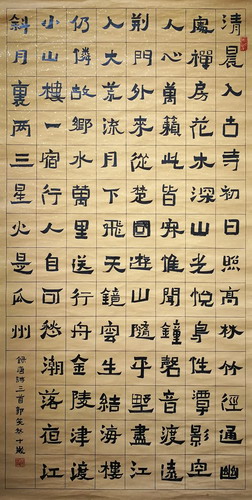 清晨入古寺初日照高林竹徑通幽
處禪房花木深山光悅鳥性潭影空
人心萬籟此皆寂惟聞鐘磬音渡遠
荊門外來從楚國遊山隨平野盡江
入大荒流月下飛天鏡雲生結海樓
仍憐故鄉水萬里送行舟金陵津渡
小山樓一宿行人自可愁潮落夜江
斜月裏两三星火是瓜州
錄唐詩三首 郭 十歲